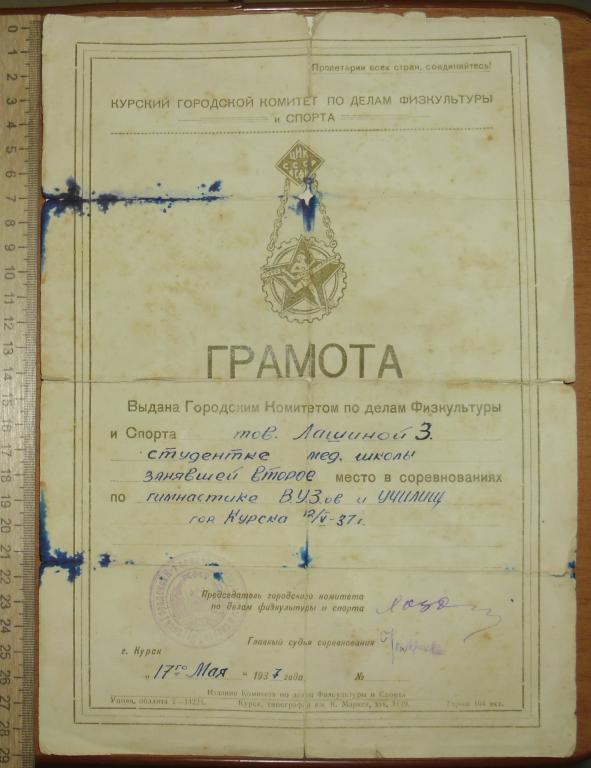 Пролетарии всех стран, соединяйтесь!
КУРСКИЙ ГОРОДСКОЙ КОМИТЕТ ПО ДЕЛАМ ФИЗКУЛЬТУРЫ
и СПОРТА
ЦИК
СССР
ГРАМОТА
Выдана Городским Комитетом по делам Физкультуры
и Спорта тов. Лашиной З.
студентке мед. школы
занявшей второе место в соревнованиях
по гимнастике В.У.Зов и училищ
гор Курска 12/V-37 г.
Председатель городского комитета
по делам физкультуры и спорта
Главный судья соревнования
г. Курск
„17го Мая “ 1937 года №
Издание Комитета по делам Физкультуры и Спорта
Упол. обллита Курск, типография им. К. Маркса, зак. Тираж 104 экз.
0
1
2
3
4
5
6
7
8
9
10
11
12
13
14
15
16
17
18
19
20
21
22
23
24
25
26
27
28
29